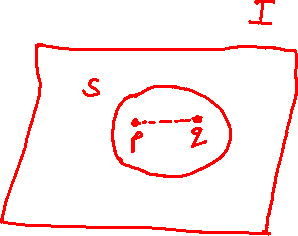 I
S
p q